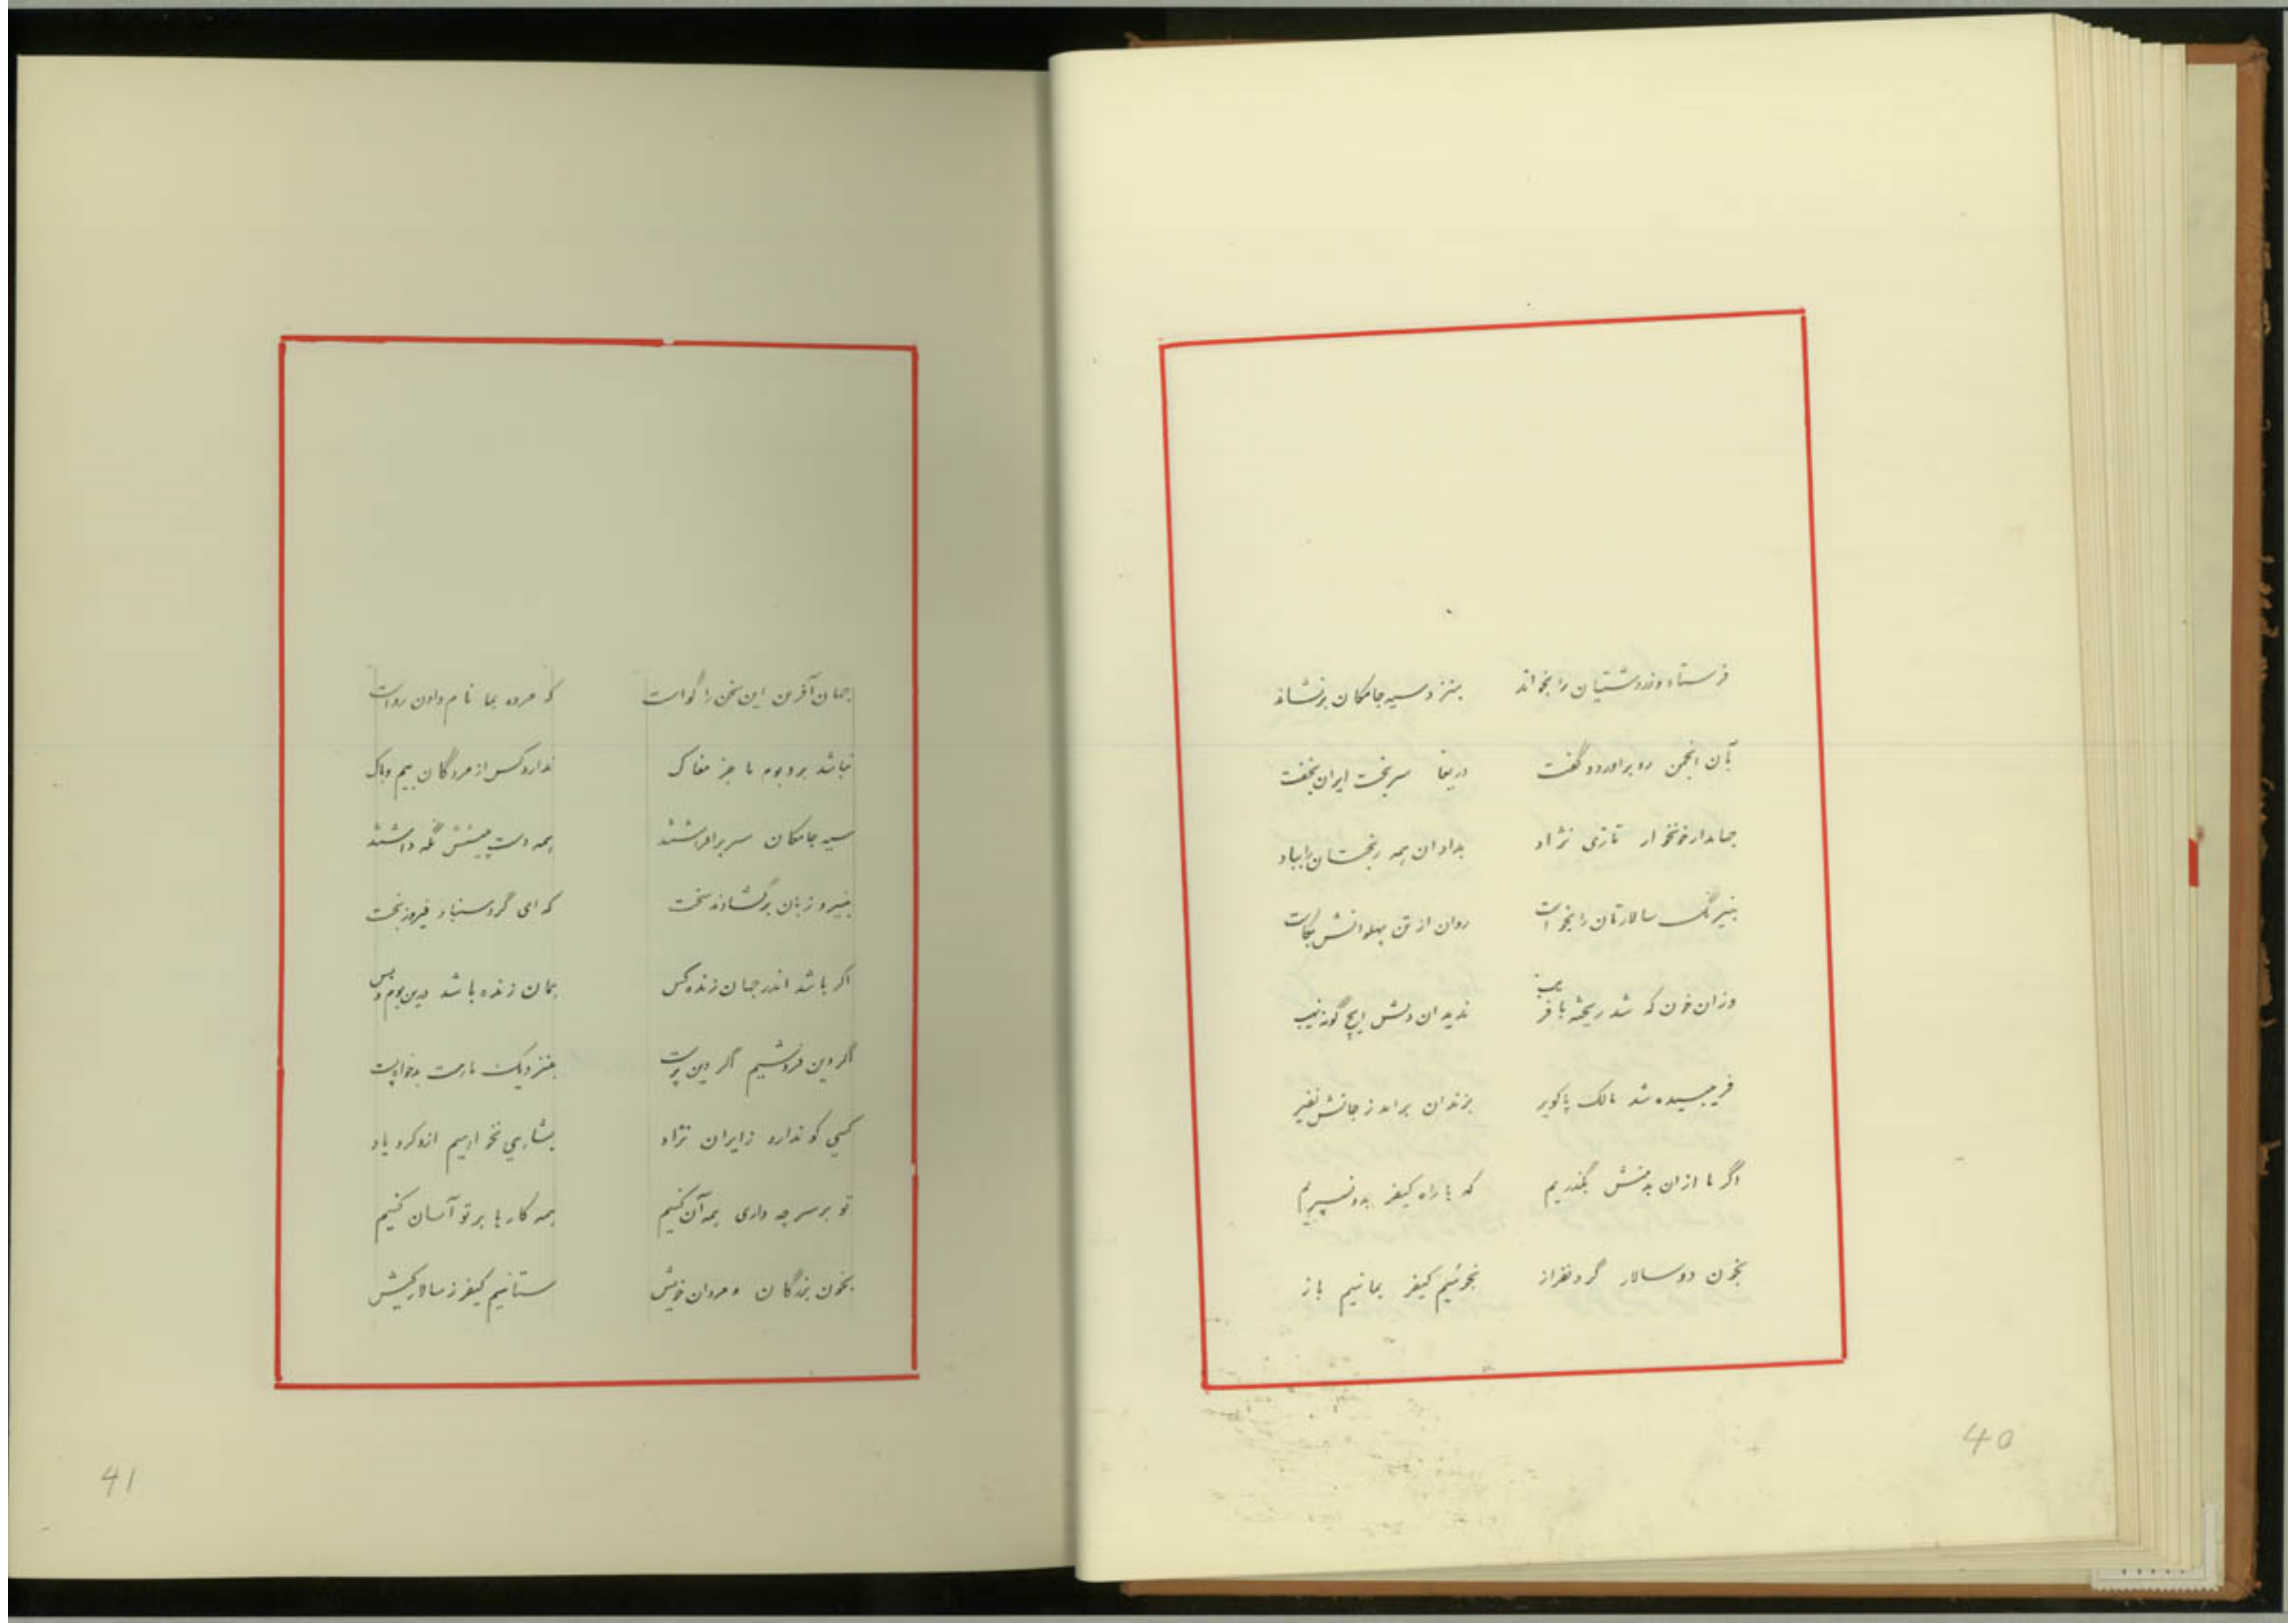 فرستاد و زردشتیان را بخواند بنزد سیه جامکان برنشاند
بآن انجمن رو برآورد و گفت دریغا سر بخت ایران بخفت
جهاندار خونخوار تازی نژاد بداد آن همه رنجتان را بباد
بنیرنگ سالارتان را بخواست روان از تن پهلوانش بکاست
وزان خون که شد ریخته با فریب ندید آن دلش ایچ گونه نهیب
فریبیده شد مالک پاکویر بزندان برآمد ز جانش نفیر
اگر ما ازان بدمنش بگذریم که با راه کیفر بدو نسپریم
بخون دو سالار گردنفراز نجوئیم کیفر بمانیم باز
40
جهان آفرین این سخن را گواست که مرده بما نام دادن رواست
نباشد بر و بوم ما جز مغاک ندارد کس از مردگان بیم و باک
سیه جامکان سر برافراشتند همه دست پیشش نگه داشتند
بنیرو زبان برگشادند سخت که ای گرد سنباد فیروزبخت
اگر باشد اندر جهان زنده کس همان زنده باشد درین بوم و بس
اگر دین فروشیم اگر دین پرست بنزدیک ما هست بدخواه پست
کسی کو ندارد ز ایران نژاد بشاهی نخواهیم ازو کرد یاد
تو بر سر چه داری همه آن کنیم همه کارها بر تو آسان کنیم
بخون بزرگان و مردان خویش ستانیم کیفر ز سالار کیش
41